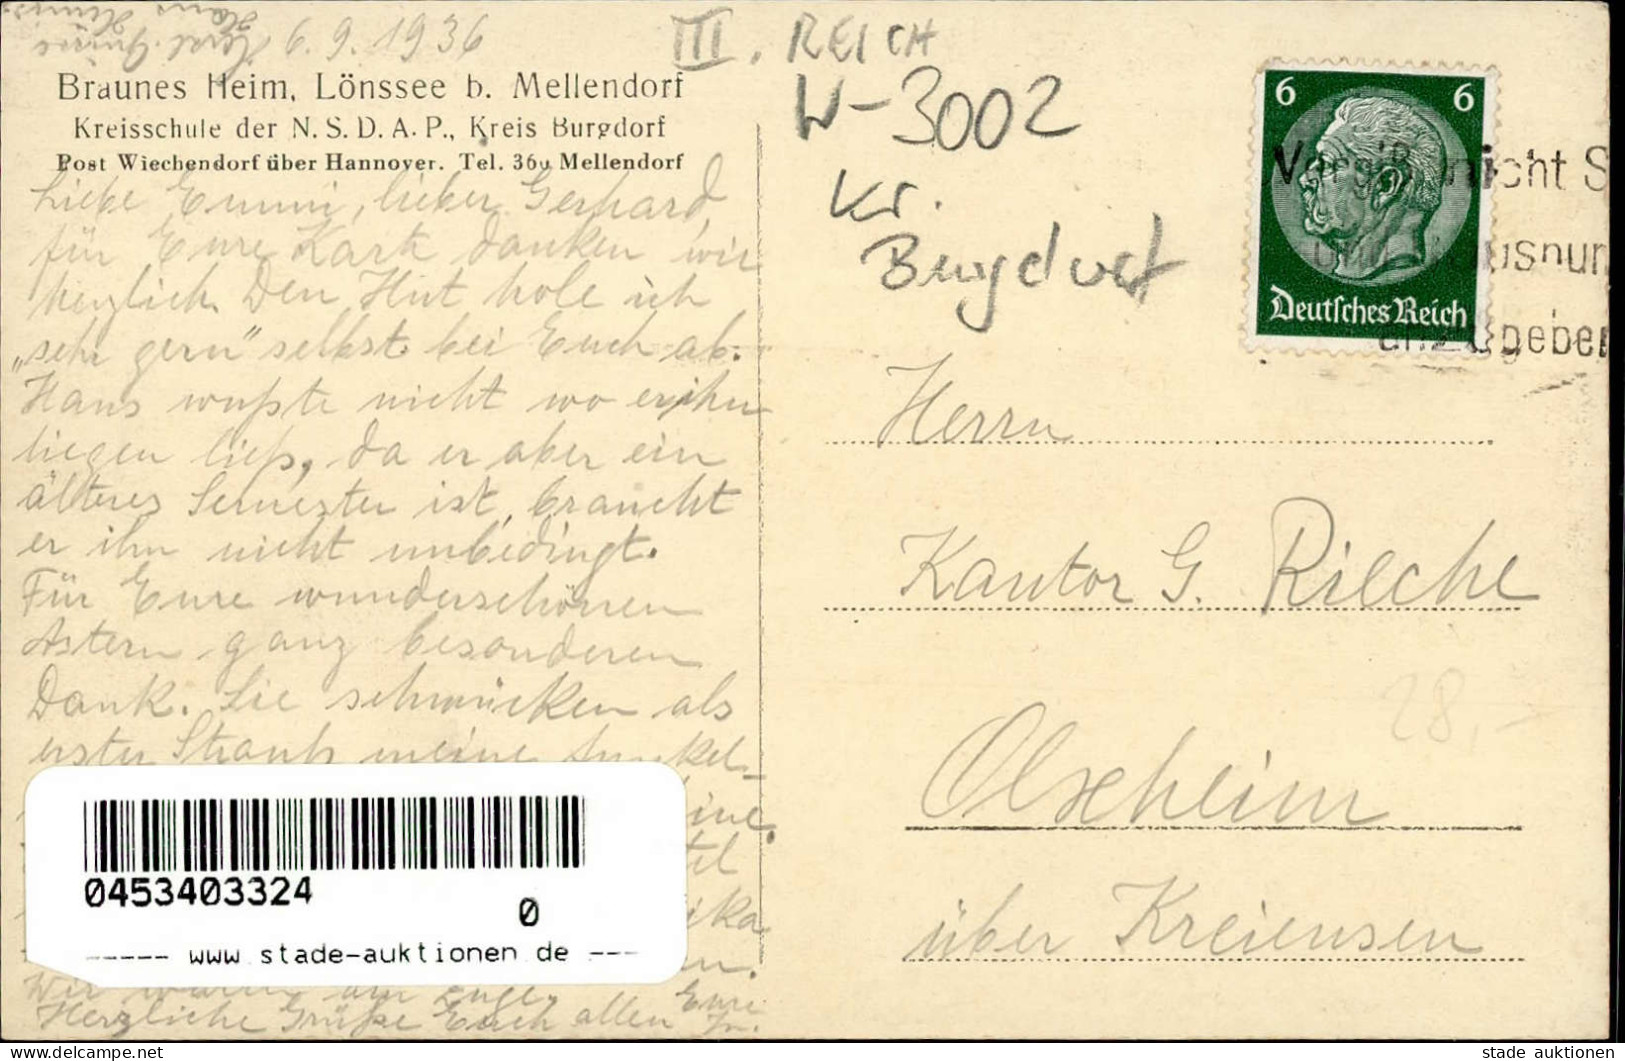 6. 9. 1936
III. REICH
Braunes Heim, Lönssee b. Mellendorf
Kreisschule der N. S. D. A. P., Kreis Burgdorf
Post Wiechendorf über Hannover. Tel. 36 Mellendorf
Liebe Emmi, lieber Gerhard,
für Eure Karte danken wir
herzlich. Den Hut hole ich
„sehr gern" selbst bei Euch ab.
Hans wußte nicht wo er ihn
liegen ließ, da er aber ein
älteres Semester ist, braucht
er ihn nicht unbedingt.
Für Eure wunderschönen
Astern ganz besonderen
Dank. Sie schmücken als
erster Strauß meine
Wir waren am
Herzliche Grüße Euch allen Eure
W-3002
Kr.
Burgdorf
6 6
Deutsches Reich
Vergiß nicht S
anzugeben
Herrn
Kantor G. Rieche
28,-
Olxheim
über Kreiensen
0453403324
0
----- www.stade-auktionen.de ---
delcampe.net
stade auktionen